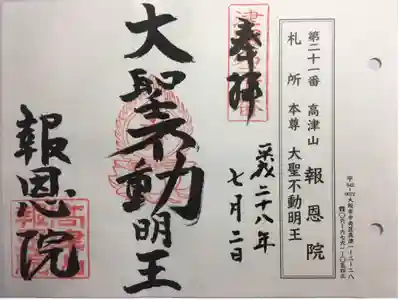 第二十一番 高津山 報恩院
札所 本尊 大聖不動明王
奉拝
平成二十八年
七月二日
大聖不動明王
報恩院